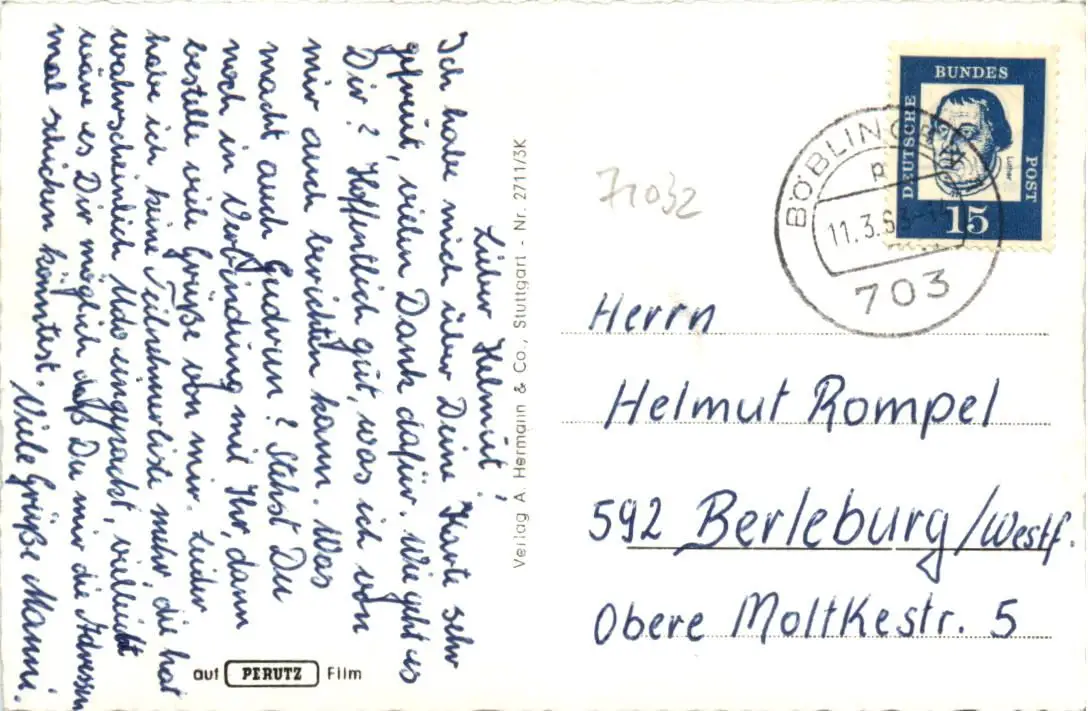 Lieber Helmut!
Ich habe mich über Deine Karte sehr
gefreut, vielen Dank dafür. Wie geht es
Dir? Hoffentlich gut, was ich von
mir auch berichten kann. Was
macht auch Gudrun? Stehst Du
noch in Verbindung mit Ihr, dann
bestelle viele Grüße von mir. Leider
habe ich keine Teilnehmerliste mehr, die hat
wahrscheinlich Udo eingepackt, vielleicht
wäre es Dir möglich daß Du mir die Adressen
mal schicken könntest.
Viele Grüße Manni.
auf PERUTZ Film
Verlag A. Hermann & Co., Stuttgart - Nr. 2711/3K
71032
DEUTSCHE
BUNDES
POST
Luther
15
BÖBLINGEN
11.3.63
703
Herrn
Helmut Rompel
592 Berleburg/Westf.
Obere Moltkestr. 5